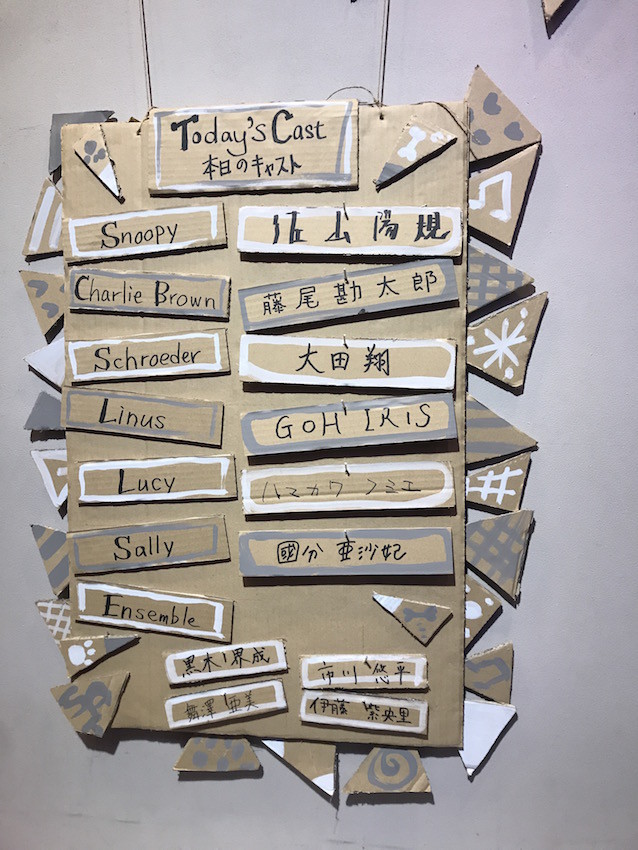 Today's Cast
本日のキャスト
Snoopy 佐山陽規
Charlie Brown 藤尾勘太郎
Schroeder 大田翔
Linus GOH IRIS
Lucy ハマカワフミエ
Sally 國分亜沙妃
Ensemble
黒木 界成 市川 悠平
舞澤 亜美 伊藤 紫央里